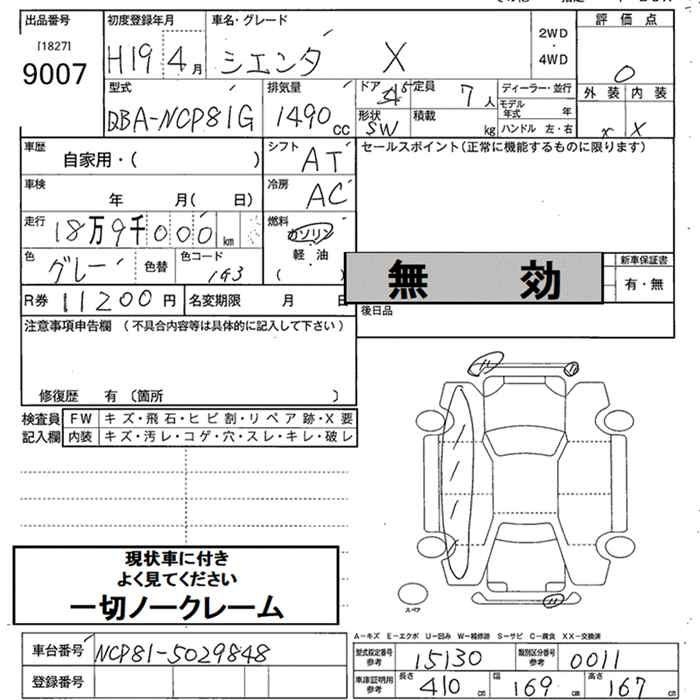 出品番号 初度登録年月 車名・グレード 2WD・4WD 評価点
[1827] 9007 H19年4月 シエンタ X 0
型式 排気量 ドア 定員 7人 ディーラー・並行 外装 内装
DBA-NCP81G 1490cc 形状 SW 積載 kg モデル年式 年 ハンドル 左・右 x X
車歴 自家用・( ) シフト AT セールスポイント(正常に機能するものに限ります)
車検 年 月( 日) 冷房 AC
走行 18万9千000km 燃料 ガソリン
色 グレー 色替 色コード 1G3 軽・油 ( )
無効 新車保証書
R券 11200円 名変期限 月 日 有・無
後日品
注意事項申告欄 (不具合内容等は具体的に記入して下さい)
修復歴 有 (箇所 )
検査員記入欄 FW キズ・飛石・ヒビ割・リペア跡・X要
内装 キズ・汚レ・コゲ・穴・スレ・キレ・破レ
現状車に付き
よく見てください
一切ノークレーム
スペア
A-キズ E-エクボ U-凹み W-補修跡 S-サビ C-腐食 XX-交換済
車台番号 NCP81-5029848 型式指定番号 参考 15130 類別区分番号 参考 0011
登録番号 車庫証明用 参考 長さ 410cm 幅 169cm 高さ 167cm